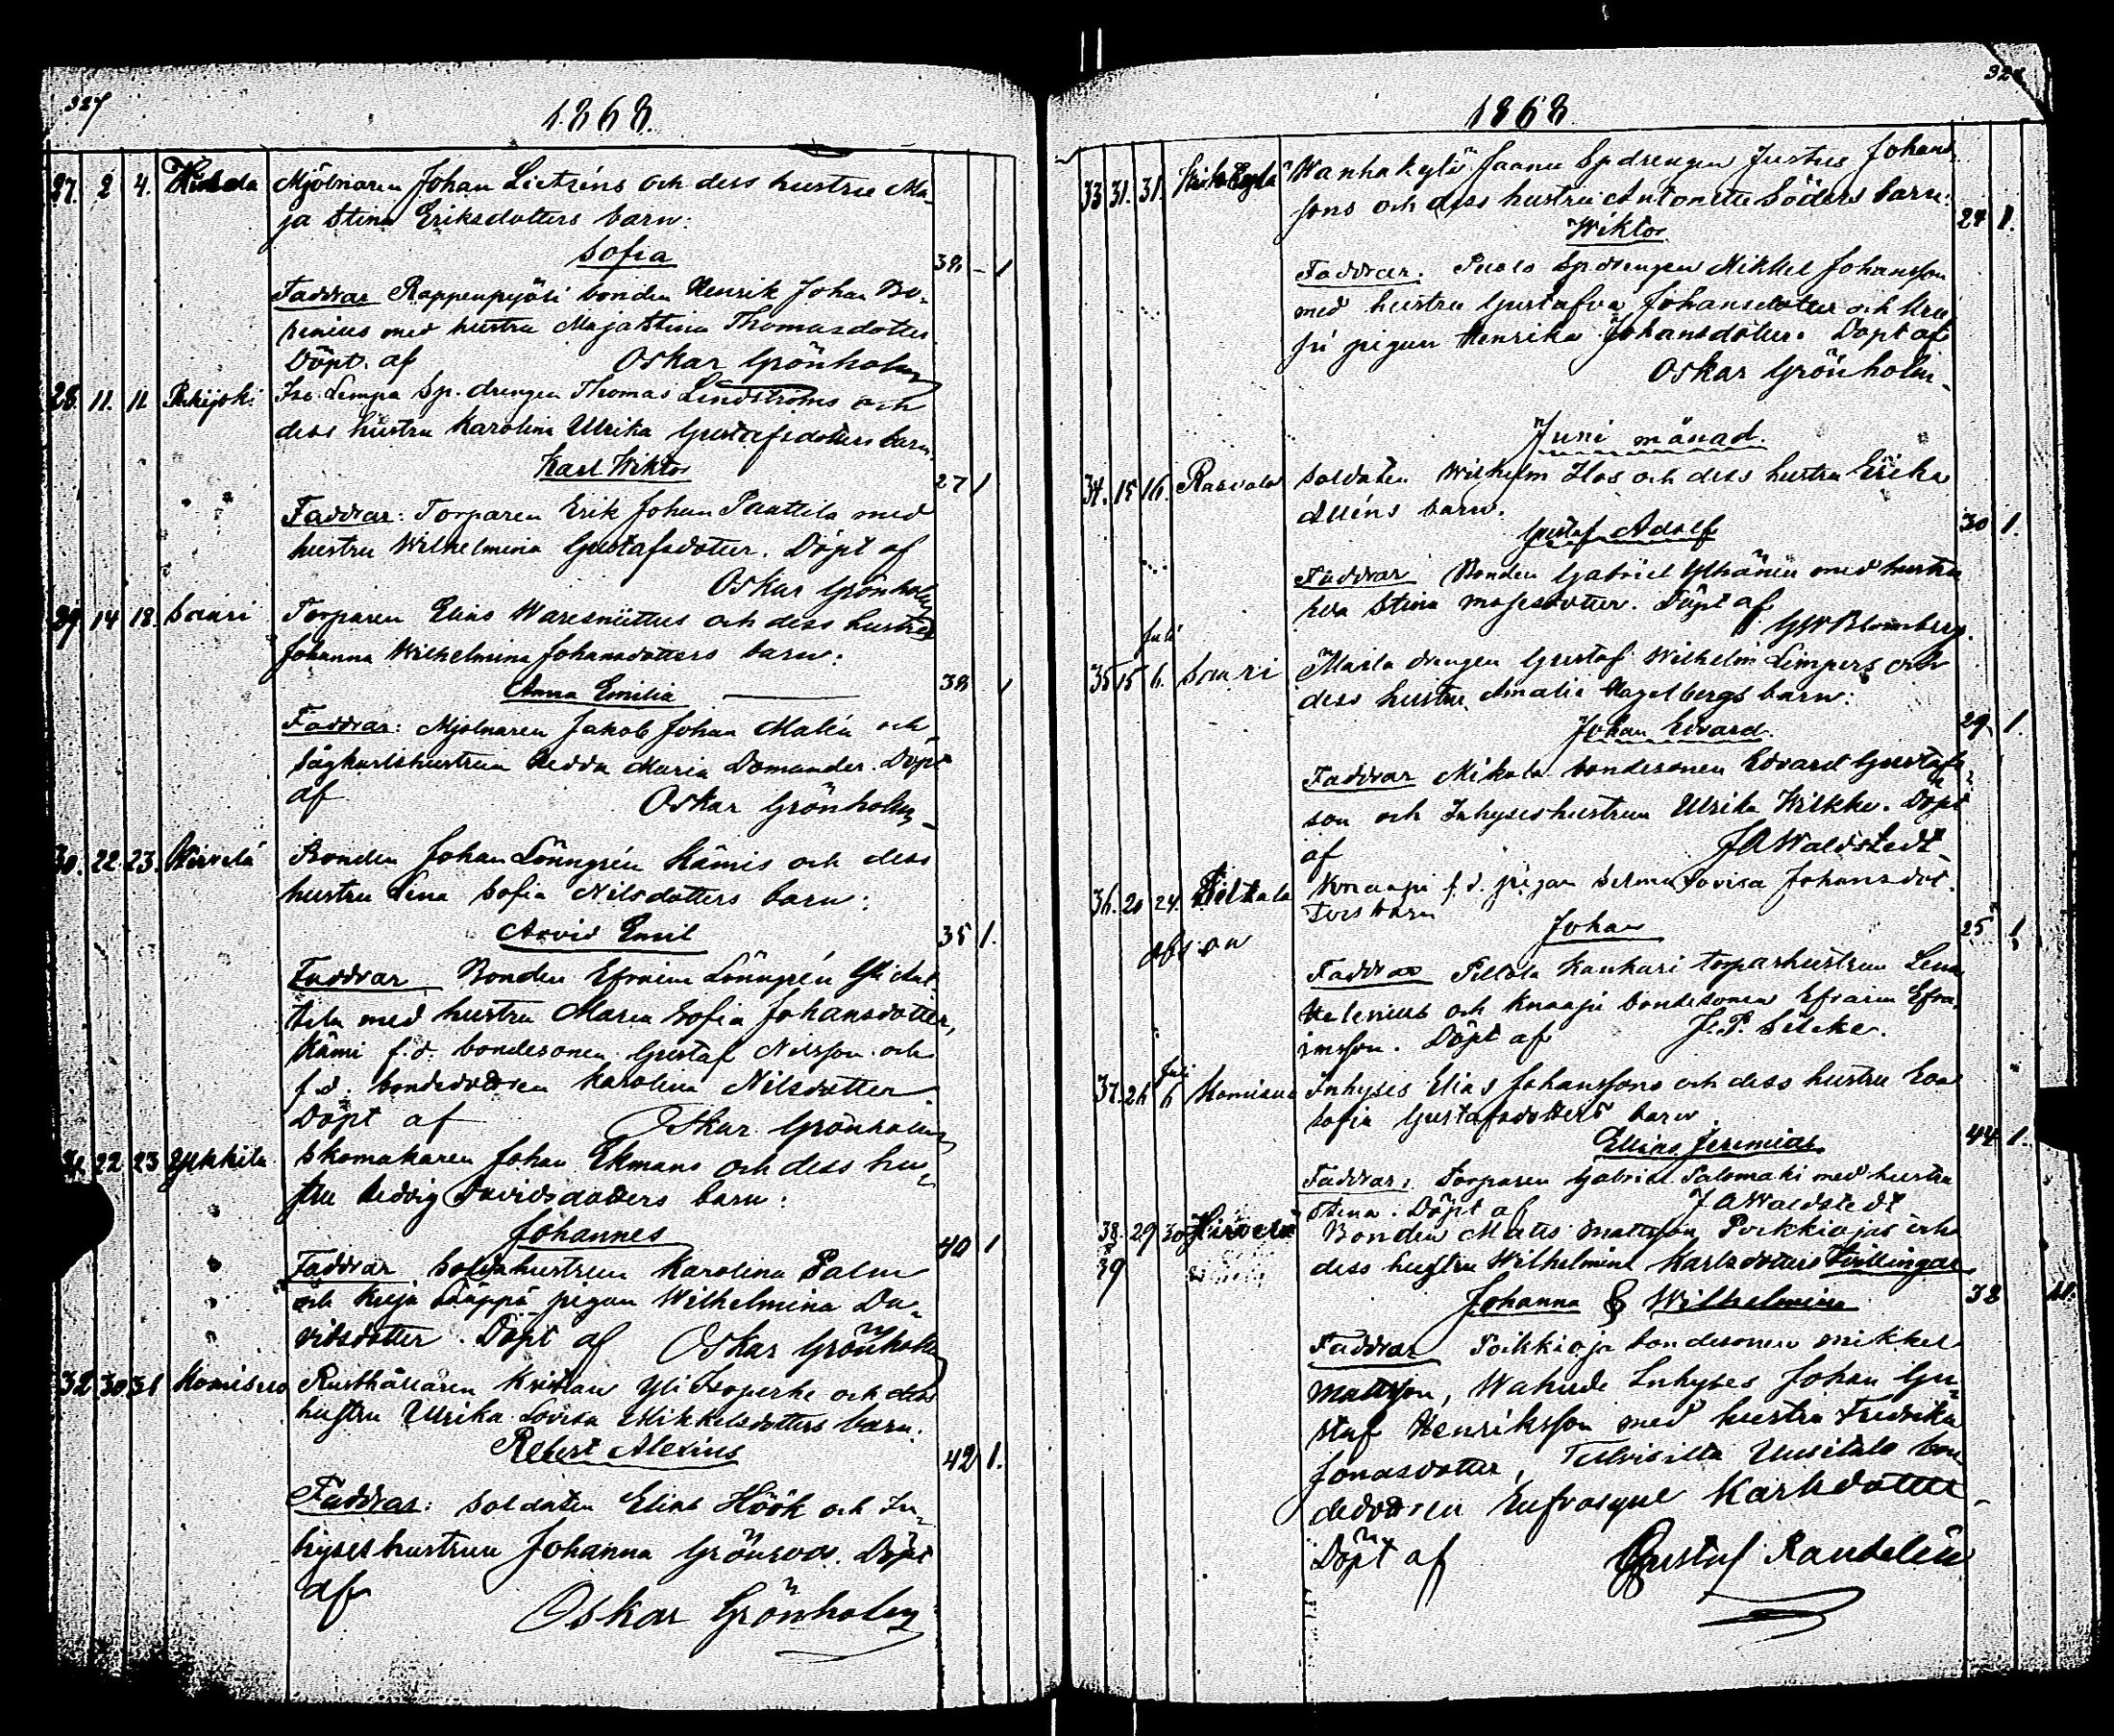 327
1868.
27. 2 4. Mjölnaren Johan Lietzéns och dess hustru Ma-
ja Stina Eriksdotters barn:
Sofia
38 - 1
Faddrar Rappenpyöli bonden Henrik Johan
med hustru Maja Stina Thomasdotter
Döpt af Oskar Grönholm
28. 11. 11 Iso Lempa Sp. drengen Thomas Lindströms och
dess hustru Karolina Ulrika Gustafsdotters barn.
Karl Wiktor
27 1
Faddrar: Torparen Erik Johan Paattila med
hustru Wilhelmina Gustafsdotter. Döpt af
Oskar Grönholm
29 14 18. Sauri Torparen Elias Waresniittus och dess hustrus
Johanna Wilhelmina Johansdotters barn:
Anna Emilia
38 1
Faddrar: Mjölnaren Jakob Johan Malén och
Sågkarlshustrun Hedda Maria Domander. Döpt
af Oskar Grönholm
30. 22. 23. Hirvelä Bonden Johan Lönngrén Kämis och dess
hustru Lena Sofia Nilsdotters barn:
Arvid Emil
35 1.
Faddrar Bonden Efraim Lönngrén Yli Ant-
tila med hustru Maria Sofia Johansdotter,
Kämi f.d. bondesonen Gustaf Nilsson och
f.d. bondedottren Karolina Nilsdotter
Döpt af Oskar Grönholm
31. 22 23 Ylkkilä Skomakaren Johan Ekmans och dess hu-
stru Hedvig Davidsdotters barn:
Johannes
40 1
Faddrar Soldathustrun Karolina Palm
och Kuja pigan Wilhelmina Da-
vidsdotter. Döpt af Oskar Grönholm
32 30 31 Komisuo Rusthållaren Kristian Yli och dess
hustru Ulrika Lovisa Mikkelsdotters barn.
Robert Alexius
42 1.
Faddrar: Soldaten Elias Höök och In-
hyseshustrun Johanna Grönroos. Döpt
af
Oskar Grönholm
328
1868
33 31. 31. Wanhakylä Jaanu Sp drengen Justus Johans-
sons och dess hustru Antonette Söders barn:
Wiktor
24 1.
Faddrar. Sp drengen Mikkel Johansson
med hustru Gustafva Johansdotter och
pigan Henrika Johansdotter. Döpt af
Oskar Grönholm
Juni månad.
34. 15 16. Rasvala Soldaten Wilhelm Ilos och dess hustru Erika
Alléns barn.
Gustaf Adolf
30 1.
Faddrar Bonden Gabriel Ylhänen med hustru
Stina Mosesdotter. Döpt af
GW Blomberg.
Juli
35 15 6. Sauri Marla drengen Gustaf Wilhelm Limpers och
dess hustru Amalia Hagelbergs barn:
Johan Edvard.
29 1.
Faddrar Mikola bondesonen Edvard Gustafs-
son och Inhyseshustrun Ulrika Wilkke. Döpt
af JAWaldstedt
36. 20 24. Kiltala Knaapi f.d. pigan Selma Lovisa Johansdot-
ters barn
Johan
25 1
Faddrar Pillola Kankari torparhustrun Lena
Helenius och Knaapi bondesonen Efraim Efra-
imsson. Döpt af J.P. Silcke.
Juli
37. 26 6 Komisuo Inhyses Elias Johanssons och dess hustru Eva
Sofia Gustafsdotters barn
Ellias Jeremias
44 1.
Faddrar. Torparen Gabriel Palomäki med hustru
Stina. Döpt af JAWaldstedt
38. 29 30 Hirvelä Bonden Matts Mattsson Poikkiojas och
39 dess hustru Wilhelmina Karlsdotters Tvillingar
Johanna & Wilhelmina
32 11.
Faddrar Poikkioja bondesonen Mikkel
Mattsson, Wahude Inhyses Johan Gu-
staf Henriksson med hustru Fredrika
Jonasdotter, Uusitalo bon-
dedottren Eufrosyne Karlsdotter
Döpt af Gustaf Randelin